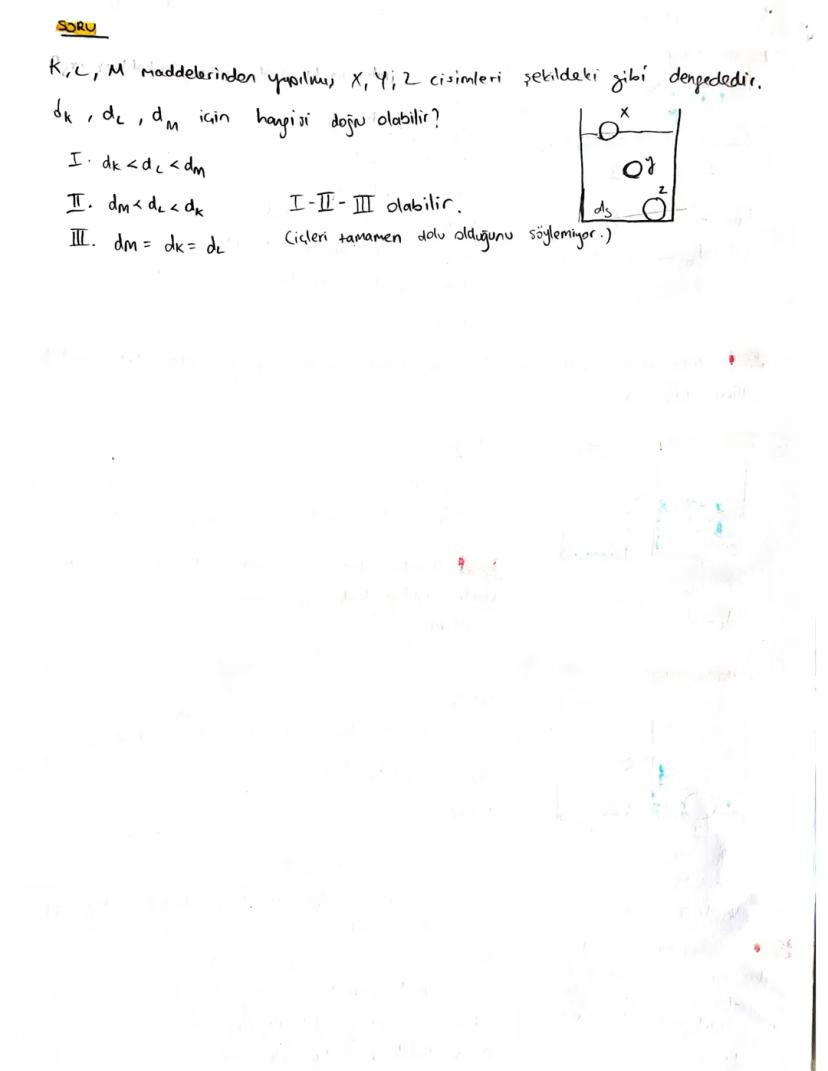 SORU
K, L, M maddelerinden yapılmış X, Y, Z cisimleri şekildeki gibi dengededir.
dK, dL, dM için hangisi doğru olabilir?
I. dK < dL < dM
II. dM < dL < dK
III. dM = dK = dL
I-II-III olabilir.
(içleri tamamen dolu olduğunu söylemiyor.)
X
y
z
ds